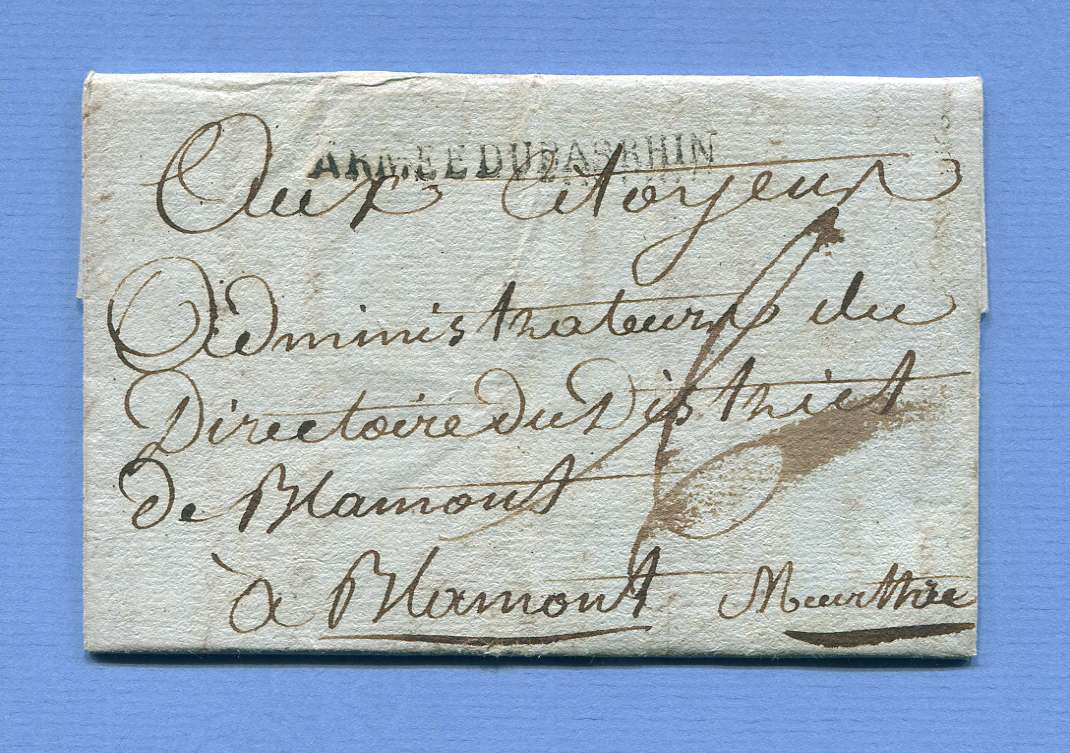 ARMEE DU BAS RHIN
Aux Citoyens
Administrateurs du
Directoire du District
de Blamont
à Blamont Meurthe